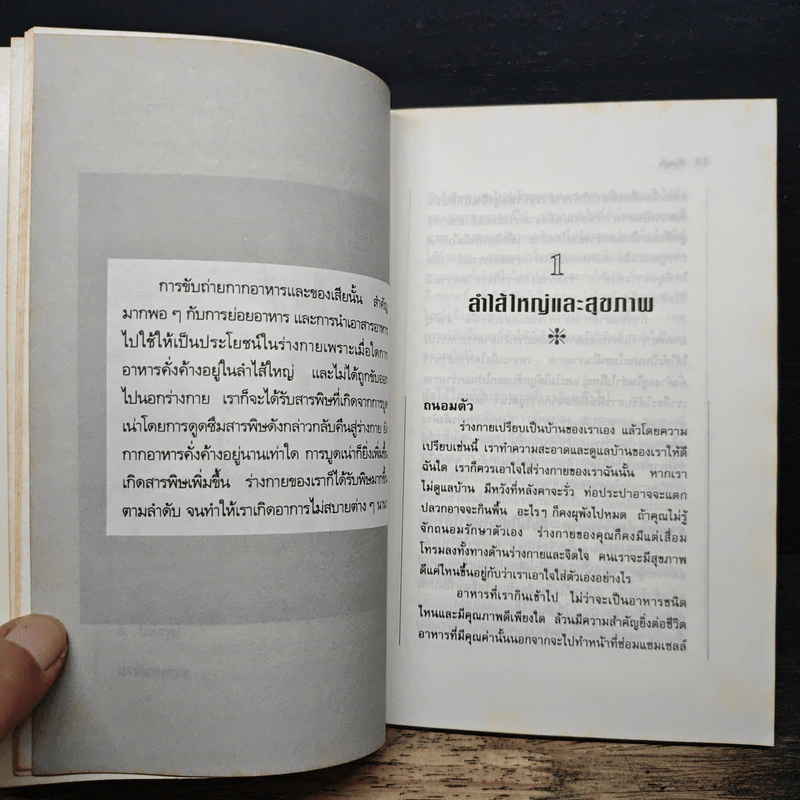 การขับถ่ายกากอาหารและของเสียนั้น สำคัญ
มากพอ ๆ กับการย่อยอาหาร และการนำเอาสารอาหาร
ไปใช้ให้เป็นประโยชน์ในร่างกายเพราะเมื่อใดกาก
อาหารคั่งค้างอยู่ในลำไส้ใหญ่ และไม่ได้ถูกขับออก
ไปนอกร่างกาย เราก็จะได้รับสารพิษที่เกิดจากการบูด
เน่าโดยการดูดซึมสารพิษดังกล่าวกลับคืนสู่ร่างกาย ยิ่ง
กากอาหารคั่งค้างอยู่นานเท่าใด การบูดเน่าก็ยิ่งเพิ่มขึ้น
เกิดสารพิษเพิ่มขึ้น ร่างกายของเราก็ได้รับพิษมากขึ้น
ตามลำดับ จนทำให้เราเกิดอาการไม่สบายต่าง ๆ นานา
1
ลำไส้ใหญ่และสุขภาพ
ถนอมตัว
ร่างกายเปรียบเป็นบ้านของเราเอง แล้วโดยความ
เปรียบเช่นนี้ เราทำความสะอาดและดูแลบ้านของเราให้ดี
ฉันใด เราก็ควรเอาใจใส่ร่างกายของเราฉันนั้น หากเรา
ไม่ดูแลบ้าน มีหวังที่หลังคาจะรั่ว ท่อประปาอาจจะแตก
ปลวกอาจจะกินพื้น อะไรๆ ก็คงผุพังไปหมด ถ้าคุณไม่รู้
จักถนอมรักษาตัวเอง ร่างกายของคุณก็คงมีแต่เสื่อม
โทรมลงทั้งทางด้านร่างกายและจิตใจ คนเราจะมีสุขภาพ
ดีแค่ไหนขึ้นอยู่กับว่าเราเอาใจใส่ตัวเองอย่างไร
อาหารที่เรากินเข้าไป ไม่ว่าจะเป็นอาหารชนิด
ไหนและมีคุณภาพดีเพียงใด ล้วนมีความสำคัญยิ่งต่อชีวิต
อาหารที่มีคุณค่านั้นนอกจากจะไปทำหน้าที่ซ่อมแซมเซลล์